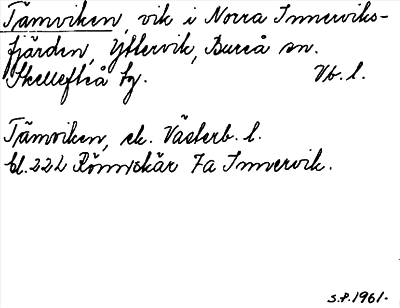 Tämviken, vik i Norra Innerviks-
fjärden, Yttervik, Bureå sn.
Skellefteå tg. Vb. l.
Tämviken, ek. Västerb. l.
bl. 22L Rönnskär 7a Innervik.
S.P. 1961.